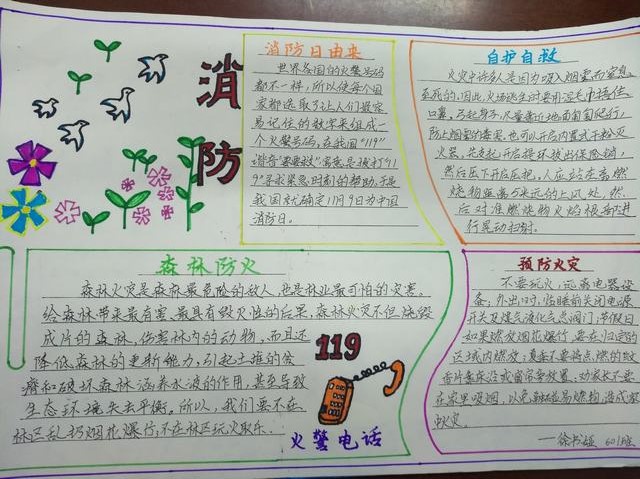 消防
消防日由来
世界各国的火警号码
都不一样,所以使每个国
家都选取了让人们最容
易记住的数字来组成一
个火警号码,在我国"119"
谐音"要要救"
寻求紧急时刻的帮助,于是
我国就确定11月9日为中国
消防日。
自护自救
火灾中许多人是因为吸入烟雾而窒息
致死的,因此,火场逃生时要用湿毛巾捂住
口鼻,弓起身子,尽量靠近地面匍匐爬行,
防止烟雾的
火器,先
然后压下开启压把,人应站在离燃
烧物距离5米远的上风处,然
后对准燃烧物火焰根部进
行晃动扫射。
森林防火
森林火灾是森林最危险的敌人,也是林业最可怕的灾害。
给森林带来最有害,最具有毁灭性的后果,森林火灾不但烧毁
成片的森林,伤害林内的动物,而且还
降低森林的更新能力,引起土壤的贫
瘠和破坏森林涵养水源的作用,甚至导致
生态环境失去平衡。所以,我们要不在
林区乱扔烟花爆竹;不在林区玩火取乐。
119
火警电话
预防火灾
不要玩火,远离电器设
备,外出时,临睡前关闭电源
开关及煤气液化气总阀门,节假日
如果燃放烟花爆竹,要在规定的
区域内燃放,夏天不要将点燃的蚊
香片靠床沿或窗帘旁放置,劝家长不要
在家里吸烟,以免触碰易燃物,造成家
火灾。
601班